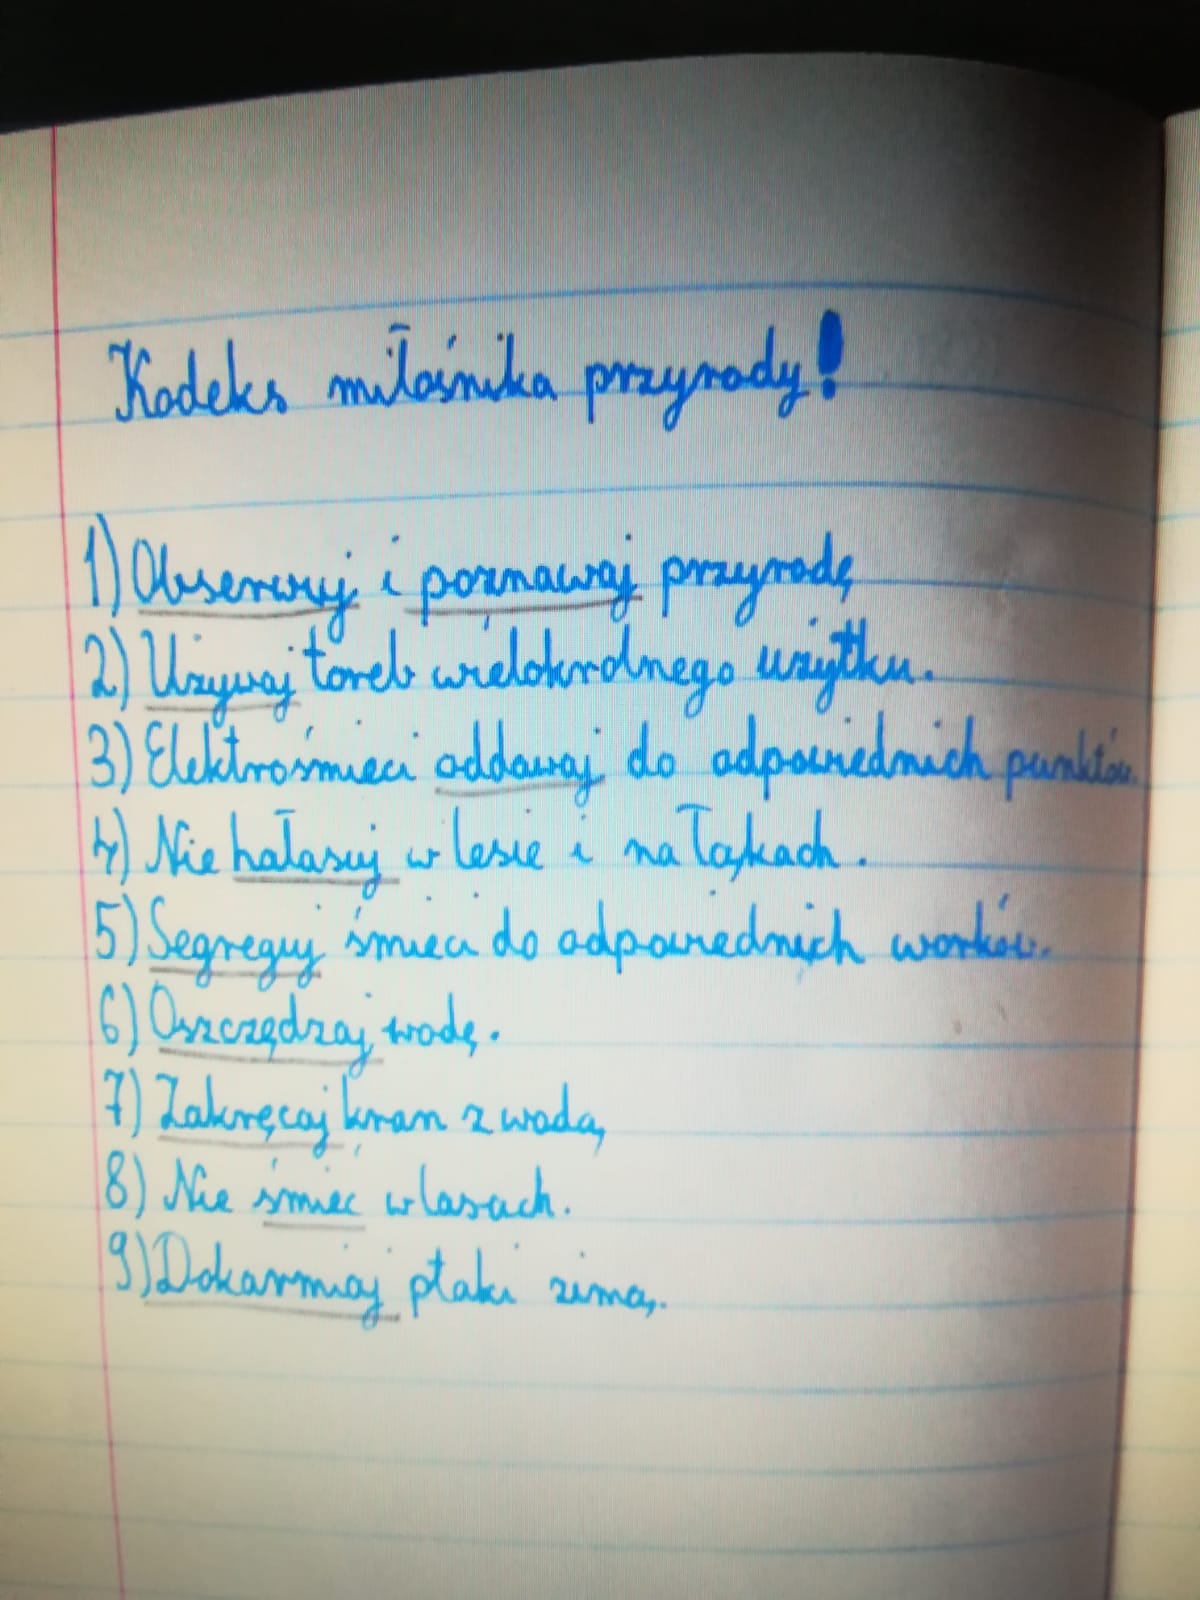 Kodeks miłośnika przyrody!
1) Obserwuj i poznawaj przyrodę
2) Używaj toreb wielokrotnego użytku.
3) Elektrośmieci oddawaj do odpowiednich punktów.
4) Nie hałasuj w lesie i na łąkach.
5) Segreguj śmieci do odpowiednich worków.
6) Oszczędzaj wodę.
7) Zakręcaj kran z wodą
8) Nie śmieć w lasach.
9) Dokarmiaj ptaki zimą.